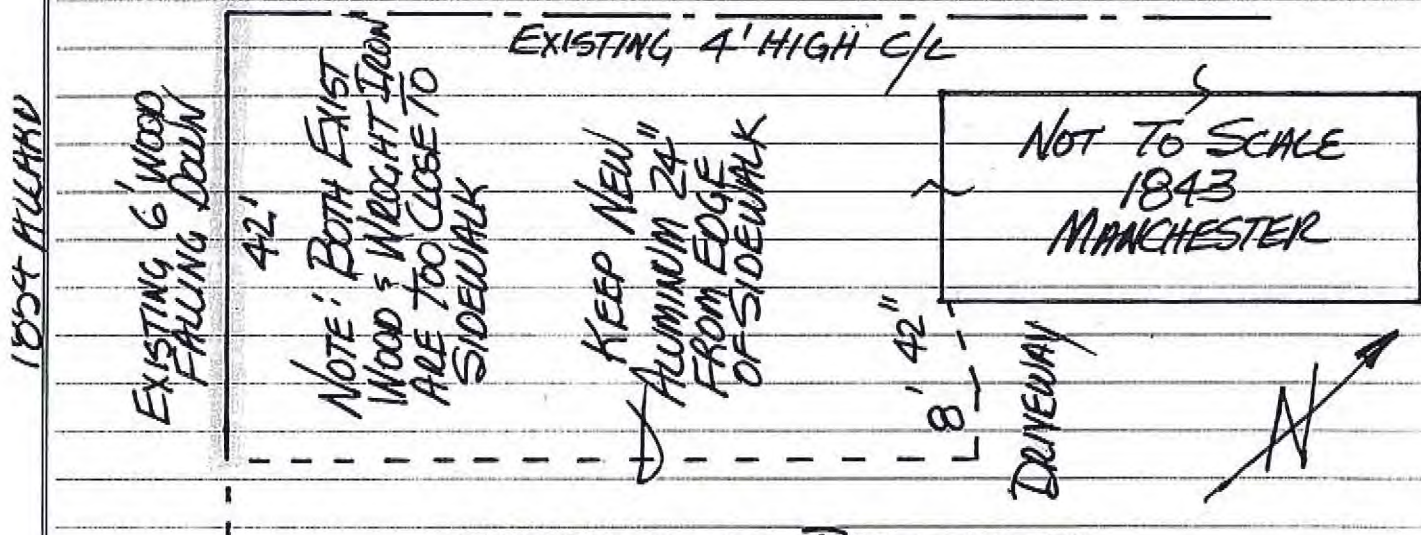 EXISTING 4' HIGH C/L
EXISTING 6' WOOD
FALLING DOWN
42'
NOTE: BOTH EXIST
WOOD & WROGHT IRON
ARE TOO CLOSE TO
SIDEWALK
KEEP NEW
ALUMINUM 24"
FROM EDGE
OF SIDEWALK
NOT TO SCALE
1843
MANCHESTER
8' 42"
DRIVEWAY
N